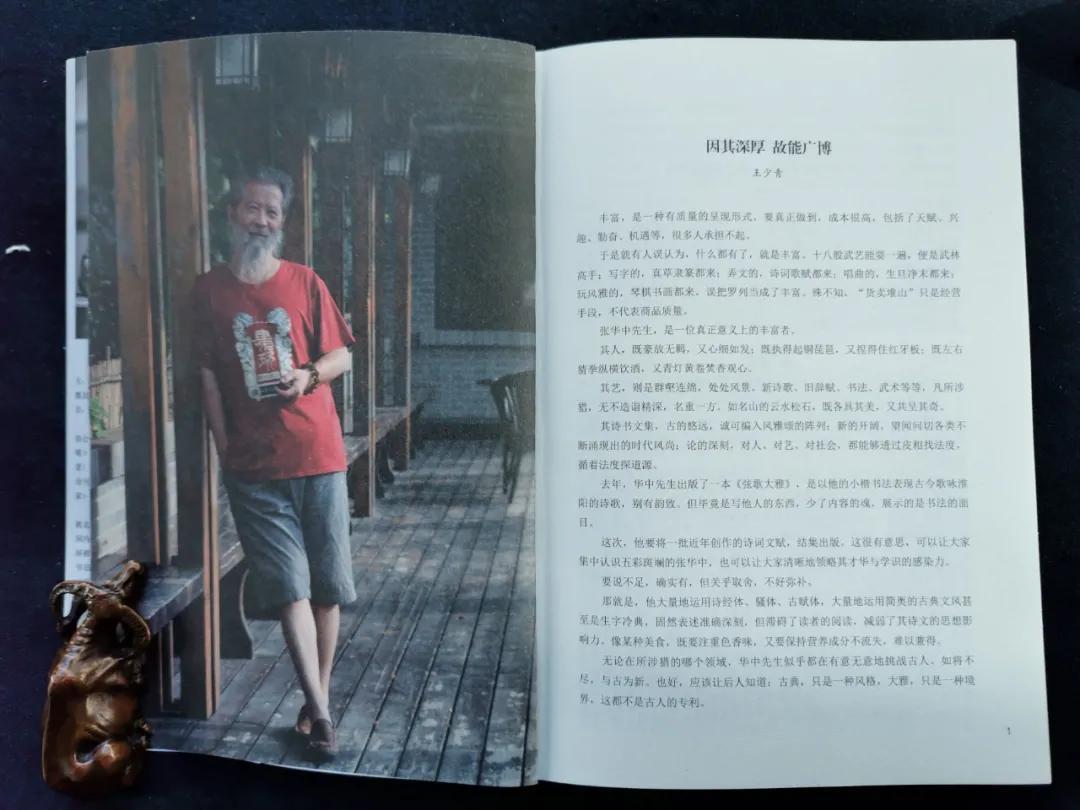 因其深厚 故能广博
王少青
丰富，是一种有质量的呈现形式，要真正做到，成本很高，包括了天赋、兴
趣、勤奋、机遇等，很多人承担不起。
于是就有人误认为，什么都有了，就是丰富。十八般武艺能耍一遍，便是武林
高手；写字的，真草隶篆都来；弄文的，诗词歌赋都来；唱曲的，生旦净末都来；
玩风雅的，琴棋书画都来，误把罗列当成了丰富。殊不知，“货卖堆山”只是经营
手段，不代表商品质量。
张华中先生，是一位真正意义上的丰富者。
其人，既豪放无羁，又心细如发；既执得起铜琵琶，又捏得住红牙板；既左右
猜拳纵横饮酒，又青灯黄卷焚香观心。
其艺，则是群壑连绵，处处风景。新诗歌、旧辞赋、书法、武术等等，凡所涉
猎，无不造诣精深，名重一方。如名山的云水松石，既各具其美，又共呈其奇。
其诗书文集，古的悠远，诚可编入风雅颂的阵列；新的开阔，望闻问切各类不
断涌现出的时代风尚；论的深刻，对人、对艺、对社会，都能够透过皮相找法度，
循着法度探道源。
去年，华中先生出版了一本《弦歌大雅》，是以他的小楷书法表现古今歌咏淮
阳的诗歌，别有韵致。但毕竟是写他人的东西，少了内容的魂，展示的是书法的面
目。
这次，他要将一批近年创作的诗词文赋，结集出版。这很有意思，可以让大家
集中认识五彩斑斓的张华中，也可以让大家清晰地领略其才华与学识的感染力。
要说不足，确实有，但关乎取舍，不好弥补。
那就是，他大量地运用诗经体、骚体、古赋体，大量地运用简奥的古典文风甚
至是生字冷典，固然表述准确深刻，但滞碍了读者的阅读，减弱了其诗文的思想影
响力。像某种美食，既要注重色香味，又要保持营养成分不流失，难以兼得。
无论在所涉猎的哪个领域，华中先生似乎都在有意无意地挑战古人。如将不
尽，与古为新。也好，应该让后人知道：古典，只是一种风格，大雅，只是一种境
界，这都不是古人的专利。
1